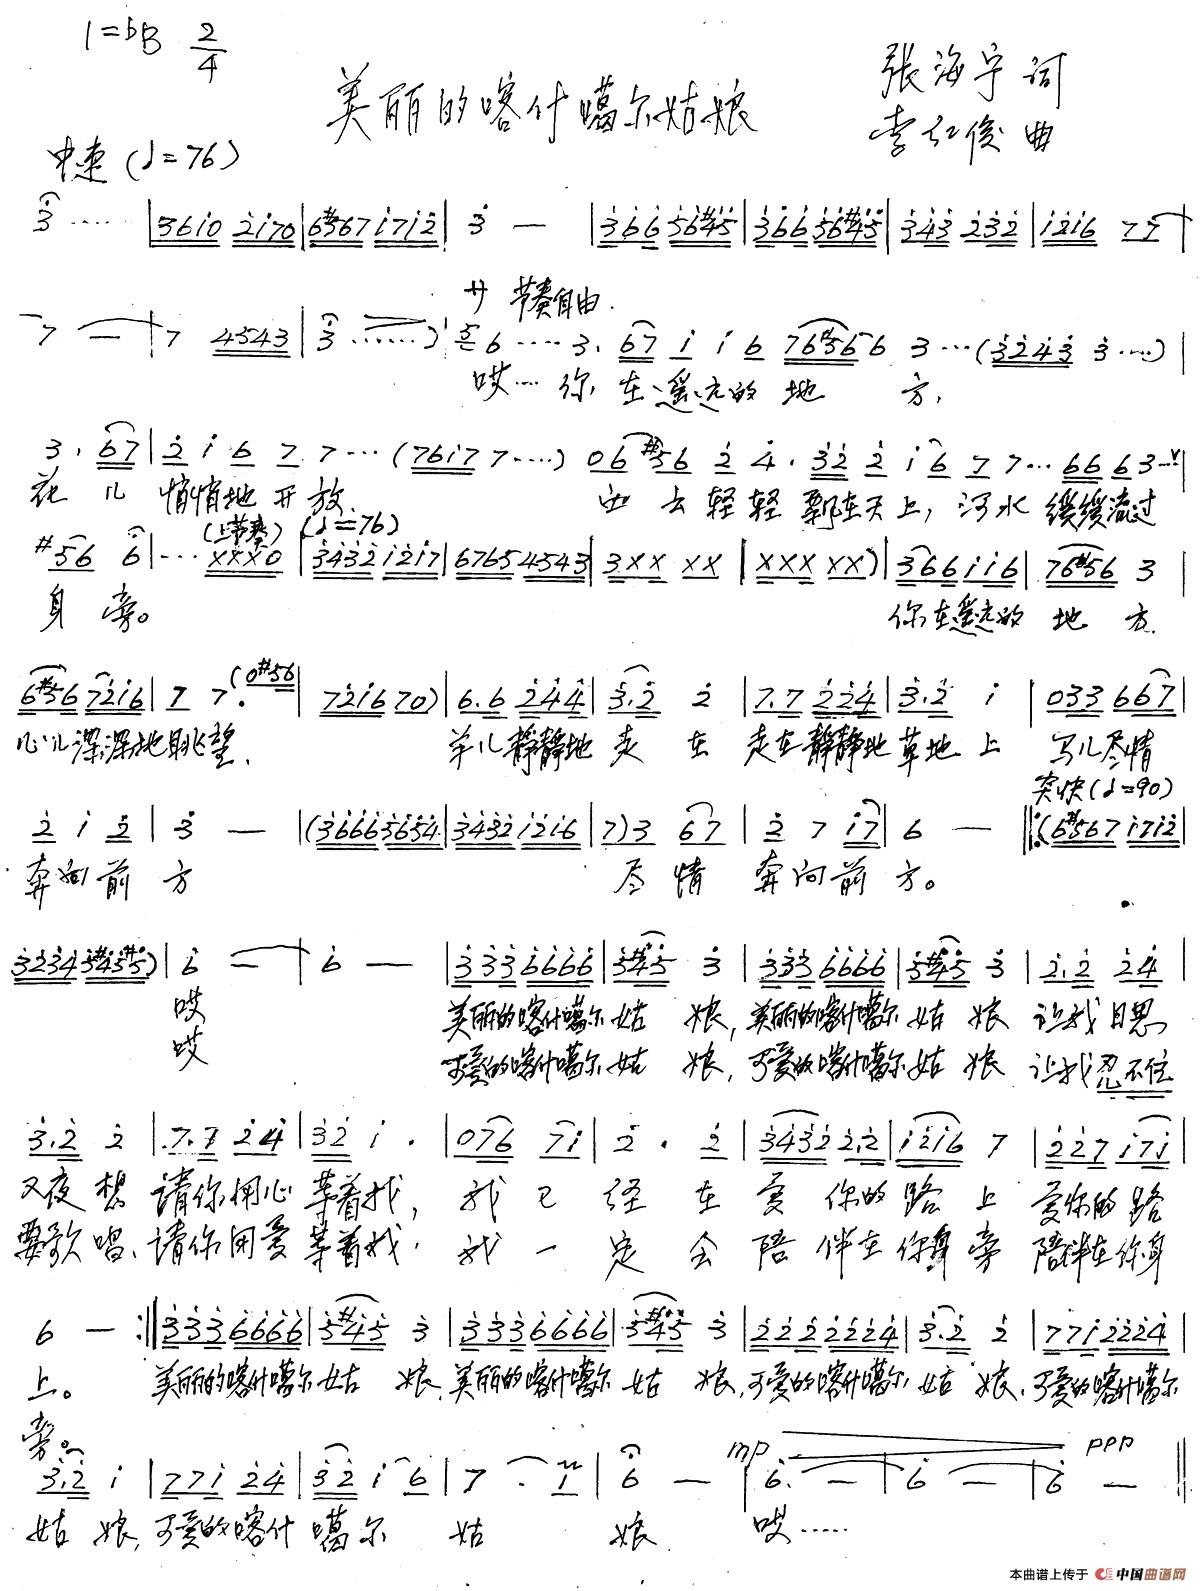 1=bB 2/4
美丽的喀什噶尔姑娘
张海宁 词
李红俊 曲
中速(♩=76)
3 ····· | 3610 2170 | 6#567 1712 | 3 — | 366 56#45 | 366 56#45 | 343 232 | 1216 77 |
サ 节奏自由.
7 — | 7 4543 | 3 ······) 5 6 ···· 3. 67 1 1 6 76#56 6 3 ···(3243 3 ····) |
哎··· 你 在遥远的 地 方,
3. 67 | 2 1 6 7 7 ···(7617 7 ····) 06 #56 2 4. 32 2 1 6 7 7 ··· 666 3 ···
花 儿 悄悄地 开 放. 白 云 轻轻 飘在天上, 河水 缓缓流过
(上节奏) (♩=76)
#56 6 | ··· XXX0 | 3432 1217 | 6765 4543 | 3XX XX | XXX XX) | 366 116 | 76#56 3 |
身 旁。 你在遥远的 地 方.
6#56 7216 | 7 7. (0#56 | 7216 70) | 6.6 244 | 3.2 2 | 7.7 224 | 3.2 1 | 033 667 |
心儿深深地眺望. 羊儿静静地 走 在 走在静静地草地 上 马儿尽情
爽快(♩=90)
2 1 2 | 3 — | (3666 3654 | 3432 1216 | 7)3 67 | 2 7 17 | 6 — ‖: (6#567 1712 |
奔向 前 方 尽 情 奔向前 方。
3234 3#45#5) | 6 — | 6 — | 333 6666 | 3#45 3 | 333 6666 | 5#45 3 | 2.2 24 |
哎 美丽的喀什噶尔 姑 娘, 美丽的喀什噶尔 姑 娘 让我日思
哎 可爱的喀什噶尔 姑 娘, 可爱的喀什噶尔 姑 娘 让我忍不住
3.2 2 | 7.7 24 | 32 1. | 076 71 | 2. 2 | 3432 2.2 | 1216 7 | 227 171 |
又夜 想 请你用心 等着我, 我 已 经 在 爱 你的 路 上 爱你的 路
要歌 唱、请你用爱 等着我, 我 一 定 会 陪 伴在 你身 旁 陪伴在你身
6 — :‖ 333 6666 | 3#45 3 | 333 6666 | 3#45 3 | 222 2224 | 3.2 2 | 771 2224 |
上。 美丽的喀什噶尔 姑 娘, 美丽的喀什噶尔 姑 娘, 可爱的喀什噶尔 姑 娘, 可爱的喀什噶尔
旁。
mp ppp
3.2 1 | 771 24 | 32 1 6 | 7. 1 | 6 — | 6. — | 6 — | 6 — ‖
姑 娘, 可爱的喀什 噶 尔 姑 娘 哎······
本曲谱上传于 中国曲谱网